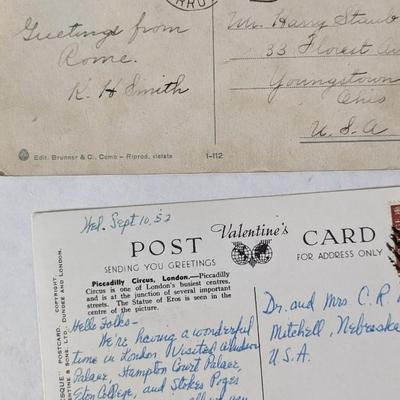 Greetings from
Rome.
K. H Smith
Mr. Harry Staub
33 Florest
Youngstown
Ohio
U. S. A
Edit. Brunner & C., Como - Riprod. vietata
1-112
Wed. Sept 10, 52
POST Valentine's CARD
SENDING YOU GREETINGS
FOR ADDRESS ONLY
Piccadilly Circus, London.—Piccadilly
Circus is one of London's busiest centres,
and is at the junction of several important
streets. The Statue of Eros is seen in the
centre of the picture.
Hello Folks-
We're having a wonderful
time in London Visited Windsor
Palace, Hampton Court Palace,
Eton College, and Stokes Poges
Dr. and Mrs C. R.
Mitchell, Nebraska
U.S.A.
ESQUE" POSTCARD. COPYRIGHT.
TINE & SONS. LTD., DUNDEE AND LONDON.